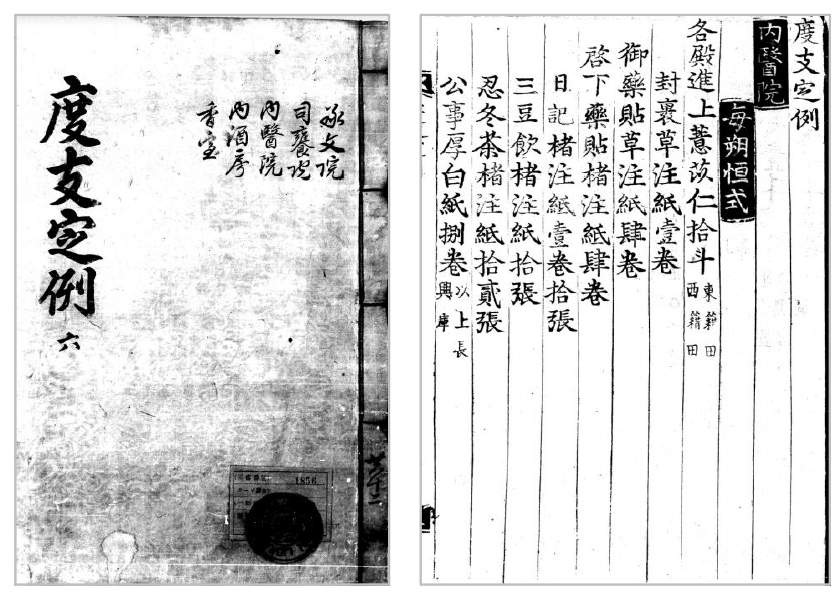 承文院
司饔院
內醫院
內酒房
香室
度支定例 六
1856
度支定例
內醫院
每朔恒式
各殿進上薏苡仁拾斗 東籍田 西籍田
封裹草注紙壹卷
御藥貼草注紙肆卷
啓下藥貼楮注紙肆卷
日記楮注紙壹卷拾張
三豆飮楮注紙拾張
忍冬茶楮注紙拾貳張
公事厚白紙捌卷 以上長興庫